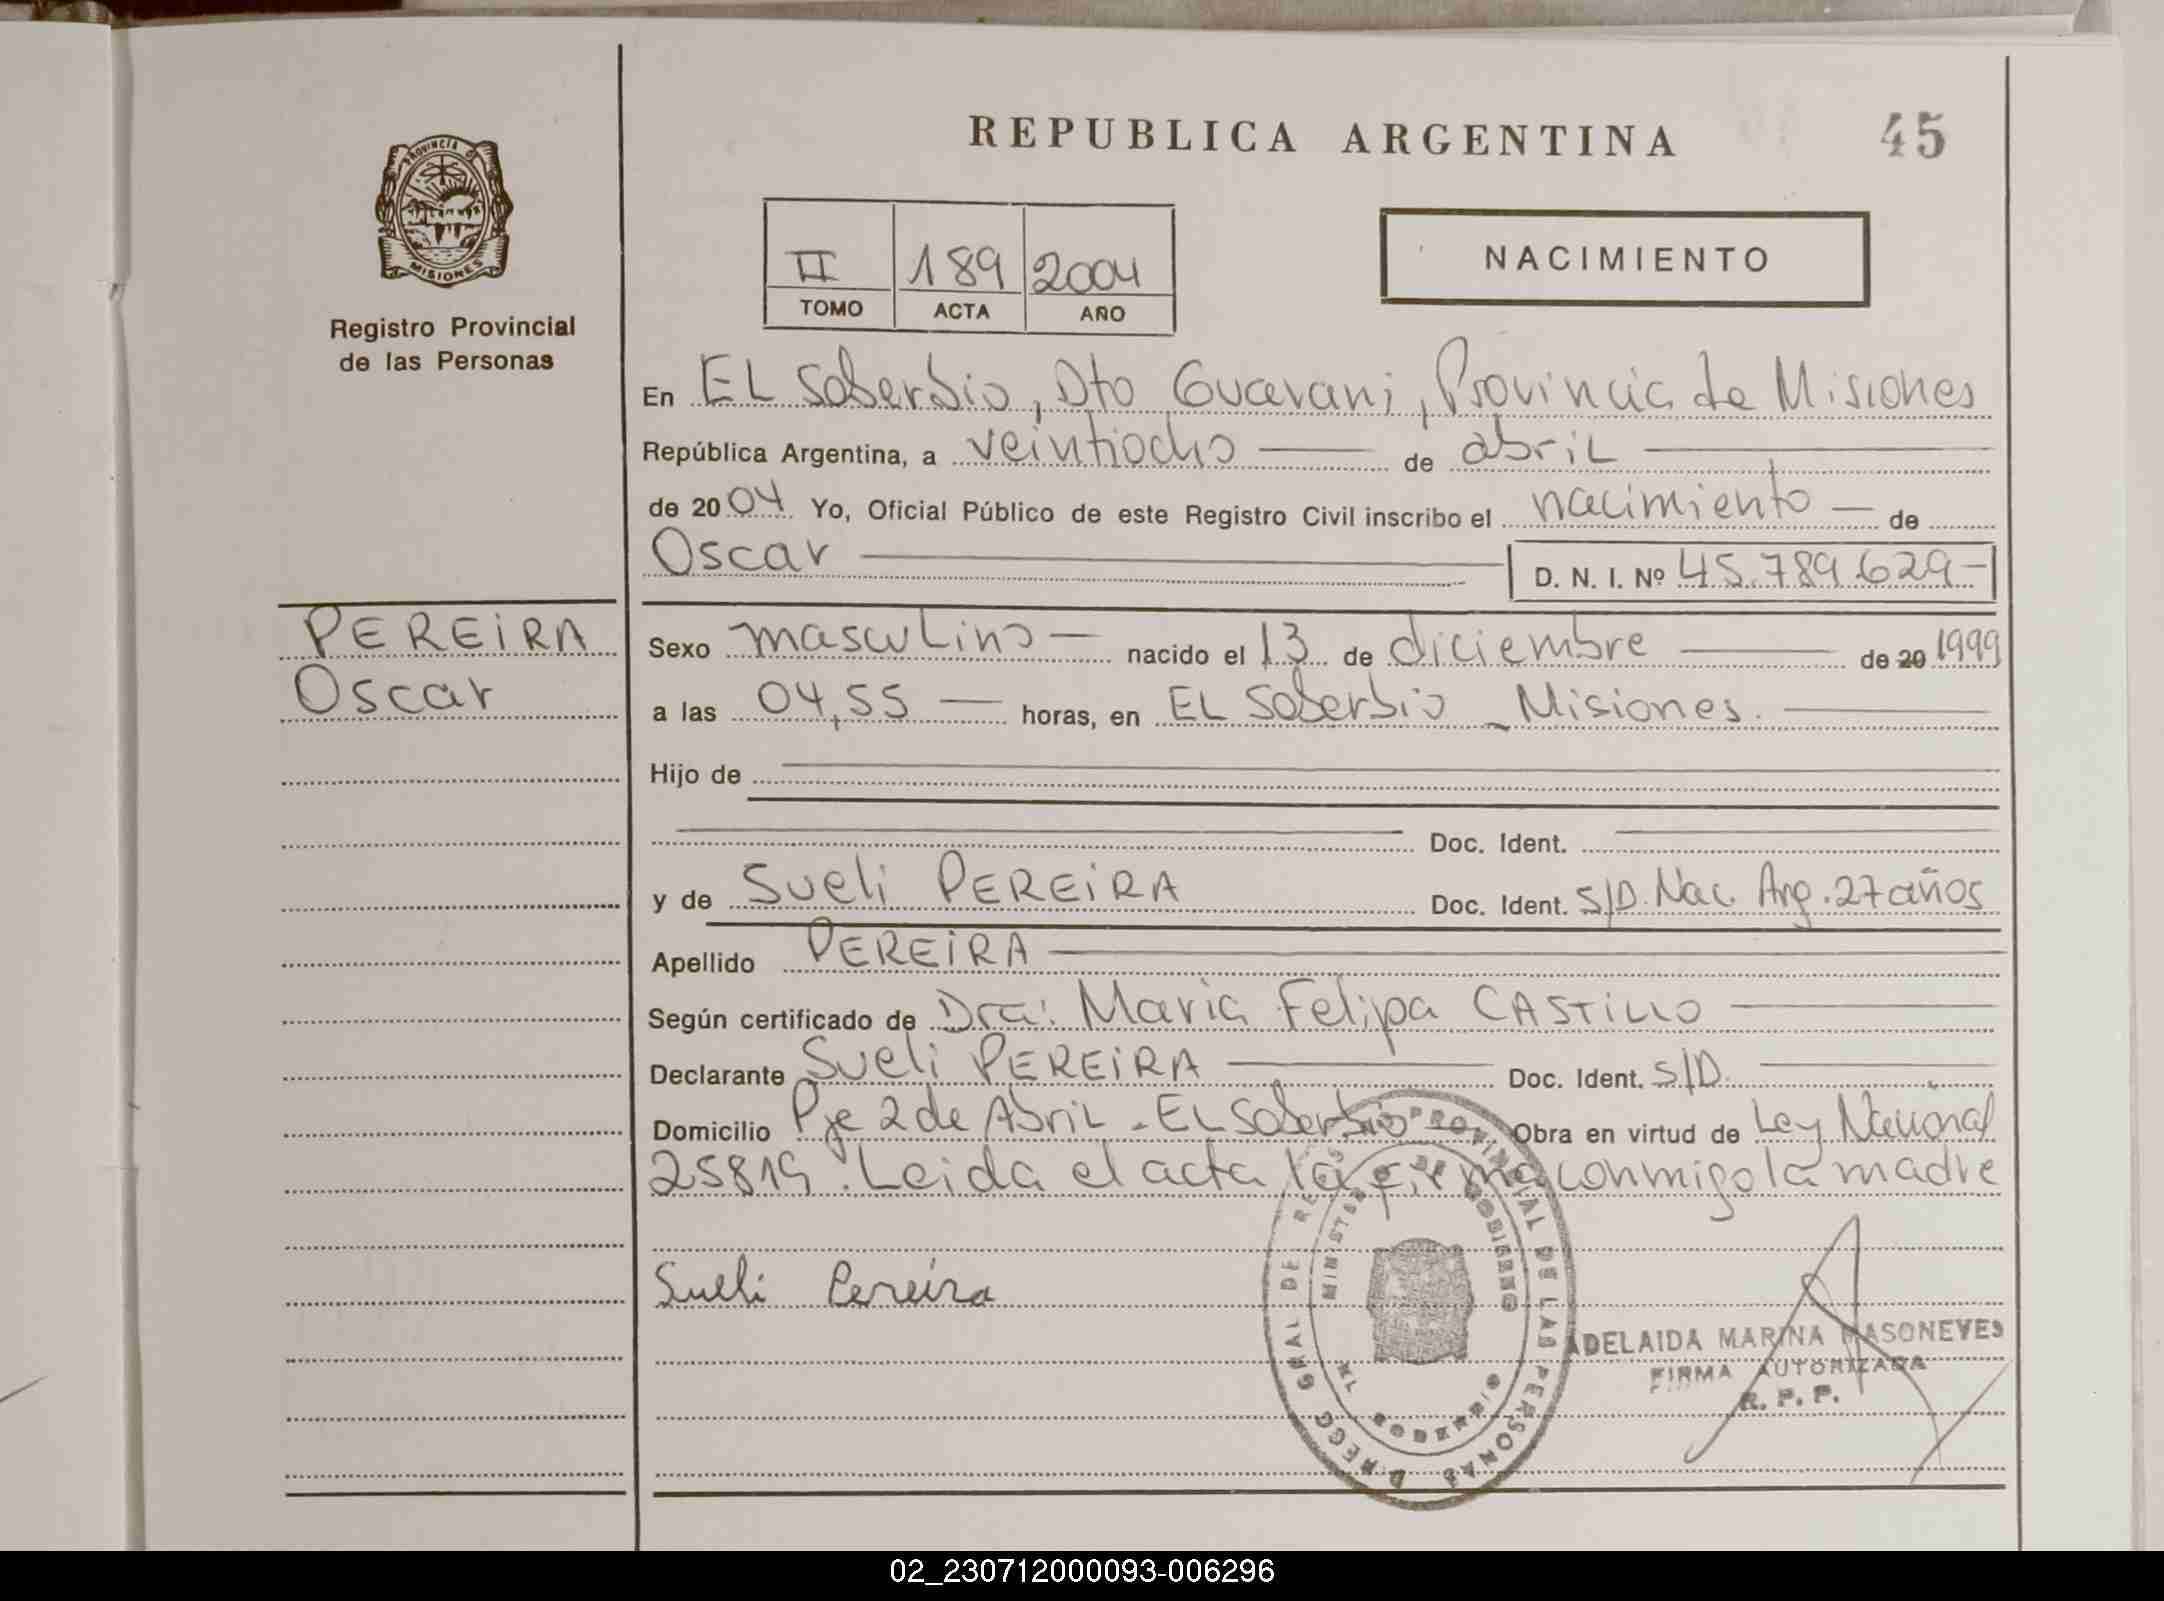 REPUBLICA ARGENTINA
45
PROVINCIA DE
MISIONES
Registro Provincial
de las Personas
II 189 2004
TOMO ACTA AÑO
NACIMIENTO
En EL Soberbio, Dto Guarani, Provincia de Misiones
República Argentina, a veintiocho de abriL
de 2004 Yo, Oficial Público de este Registro Civil inscribo el nacimiento de
Oscar D. N. I. Nº 45.789.629-
PEREIRA
Oscar
Sexo mascuLino nacido el 13 de diciembre de 20 1999
a las 04,55 horas, en EL Soberbio - Misiones.
Hijo de
Doc. Ident.
y de Sueli PEREIRA Doc. Ident. S/D. Nac. Arg. 27 años
Apellido PEREIRA
Según certificado de Dra: Maria Felipa CASTILLO
Declarante Sueli PEREIRA Doc. Ident. S/D.
Domicilio Pje 2 de AbriL - EL Soberbio Obra en virtud de Ley Nacional
25819. Leida el acta la firma conmigo la madre
Sueli Pereira
DIREGG GRAL DE REGIS PROVINCIAL DE LAS PERSONAS
MINISTER DE GOBIERNO
EL SOBERBIO
ADELAIDA MARINA MASONEVES
FIRMA AUTORIZADA
R. P. P.
02_230712000093-006296